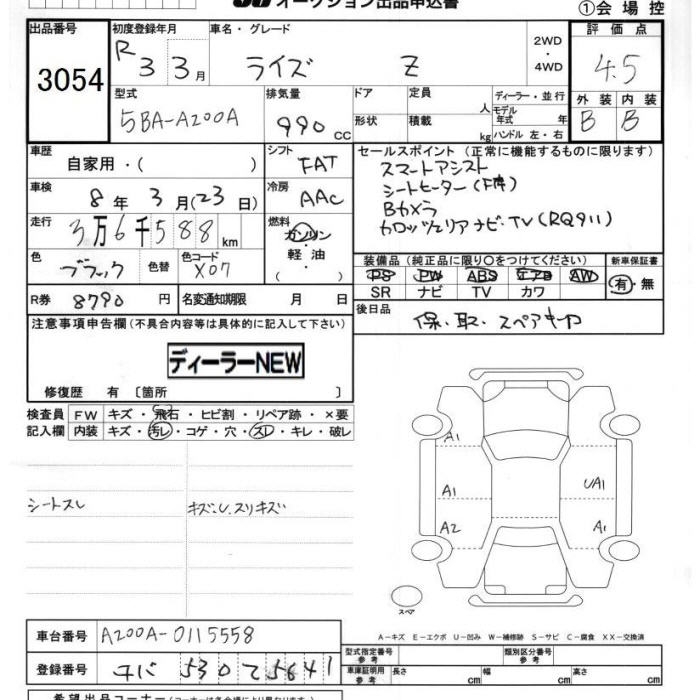 オークション出品申込書
①会場控
出品番号 3054
初度登録年月 R 3 3月
車名・グレード ライズ Z
2WD・4WD
評価点 4.5
外装 B 内装 B
型式 5BA-A200A
排気量 990 cc
ドア 形状
定員 人
積載 kg
ディーラー・並行
モデル年式 年
ハンドル 左・右
車歴 自家用・( )
シフト FAT
車検 8年 3月(23日)
冷房 AAC
走行 3万6千588km
燃料 ガソリン 軽油・( )
色 ブラック 色替 色コード X07
R券 8790円
名変通知期限 月 日
セールスポイント(正常に機能するものに限ります)
スマートアシスト
シートヒーター(F席)
Bカメラ
カロッツェリアナビ・TV(RQ911)
装備品(純正品に限り○をつけてください)
PS PW ABS エアB AW
SR ナビ TV カワ
新車保証書 有・無
後日品 保・取・スペアキー
注意事項申告欄(不具合内容等は具体的に記入して下さい)
ディーラーNEW
修復歴 有〔箇所 〕
検査員記入欄
FW キズ・飛石・ヒビ割・リペア跡・×要
内装 キズ・汚レ・コゲ・穴・スレ・キレ・破レ
シートスレ
キズ・U、スリキズ
A1
A1
UA1
A2
A1
スペア
A-キズ E-エクボ U-凹み W-補修跡 S-サビ C-腐食 XX-交換済
車台番号 A200A-0115558
型式指定番号 参考
類別区分番号 参考
登録番号 530 5641
車庫証明用 参考 長さ cm 幅 cm 高さ cm
希望出品コーナー